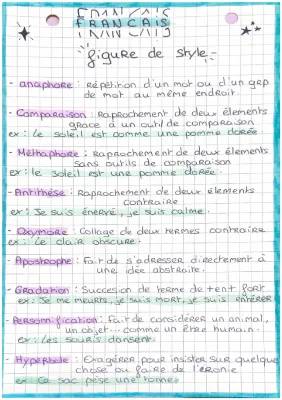 FRANCAIS
figure de style
- anaphore : Répétition d'un mot ou d'un grp
de mot au même endroit.
- Comparaison : Raprochement de deux élements
grace à un outil de comparaison
ex : le soleil est comme une pomme dorée
- Méthaphore : Raprochement de deux élements
sans outils de comparaison
ex : le soleil est une pomme dorée.
- Antithèse : Raprochement de deux élements
contraire
ex : Je suis énervé, je suis calme.
- Oxymore : Collage de deux termes contraire
ex : Le clair obscure.
- Apostrophe : Fait de s'adresser directement à
une idée abstraite.
- Gradation : Succesion de terme de + en + fort
ex : Je me meurts, je suis mort, je suis enterrer
- Personnification : Fait de considérer un animal,
un objet... comme un être humain.
ex : Les souris dansent.
- Hyperbole : Exagérer pour insister sur quelque
chose ou faire de l'eronie
ex : Ce sac pèse une tonne.